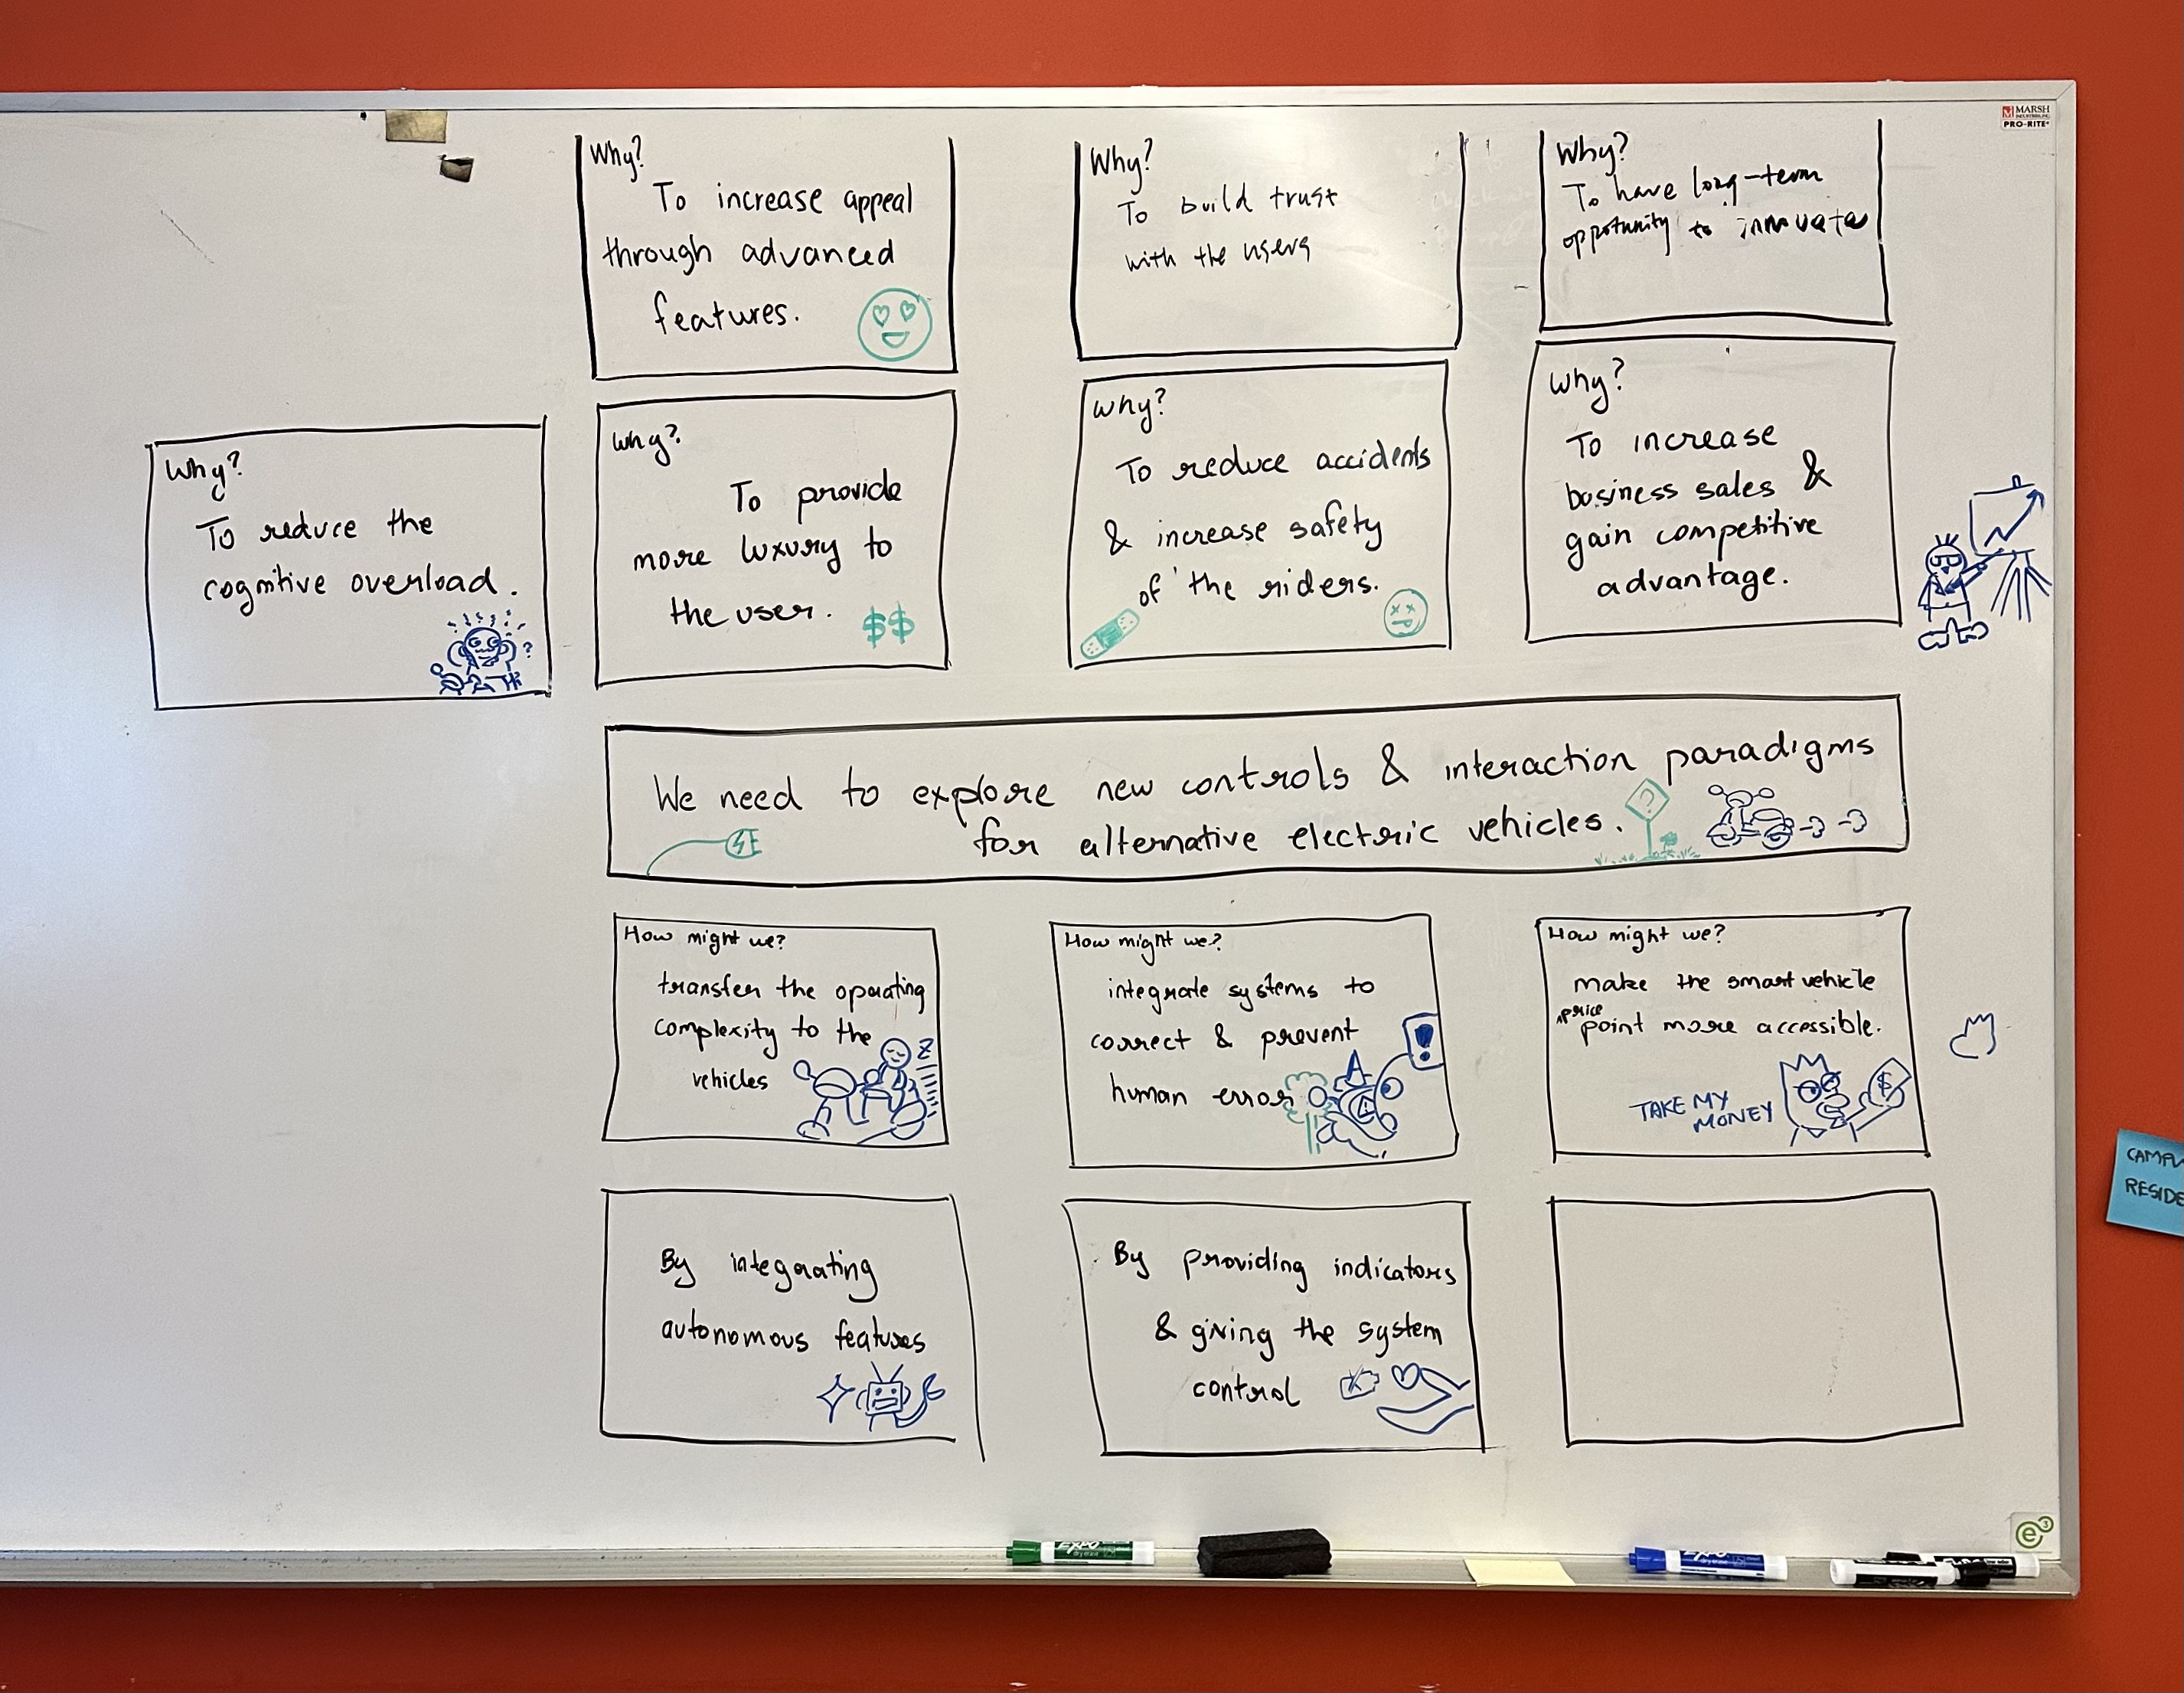 MARSH
INDUSTRIES, INC.
PRO-RITE
Why?
To increase appeal
through advanced
features.
Why?
To build trust
with the users
Why?
To have long-term
opportunity to innovate
Why?
To reduce the
cognitive overload.
?
Why?
To provide
more luxury to
the user.
$$
Why?
To reduce accidents
& increase safety
of the riders.
Why?
To increase
business sales &
gain competitive
advantage.
We need to explore new controls & interaction paradigms
for alternative electric vehicles.
?
How might we?
transfer the operating
complexity to the
vehicles
Z
How might we?
integrate systems to
correct & prevent
human error
!
How might we?
make the smart vehicle
^price point more accessible.
TAKE MY
MONEY
$
By integrating
autonomous features
By providing indicators
& giving the system
control
RESIDE
EXPO
e3